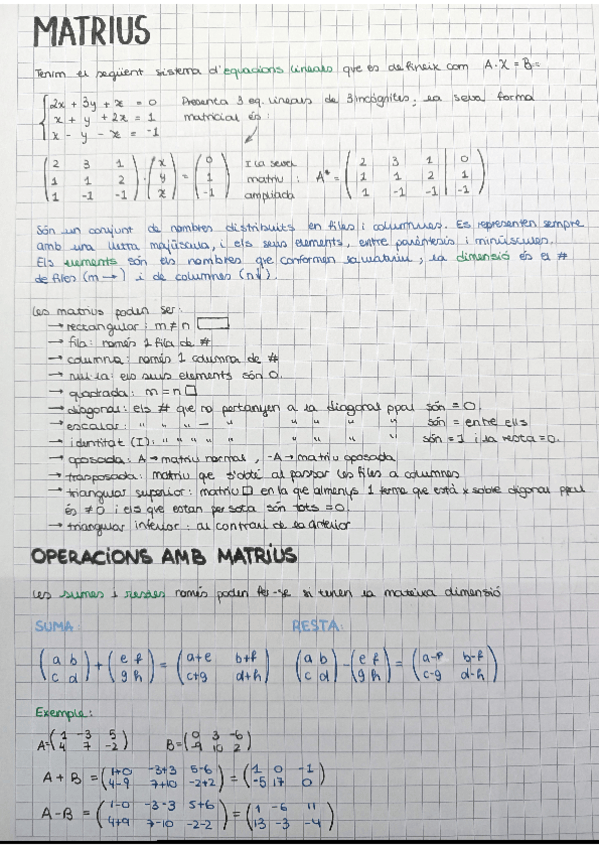 MATRIUS
Tenim el següent sistema d'equacions lineals que es defineix com A·X = B =
2x + 3y + z = 0 Presenta 3 eq. lineals de 3 incògnites; la seva forma
x + y + 2z = 1 matricial és:
x - y - z = -1
(2 3 1) (x) (0) I la seva (2 3 1 | 0)
(1 1 2) · (y) = (1) matriu A* = (1 1 2 | 1)
(1 -1 -1) (z) (-1) ampliada (1 -1 -1 | -1)
Són un conjunt de nombres distribuïts en files i columnes. Es representen sempre
amb una lletra majúscula, i els seus elements, entre parèntesis i minúscules.
Els elements són els nombres que conformen la matriu, la dimensió és el #
de files (m →) i de columnes (n↓).
Les matrius poden ser:
→ rectangular: m ≠ n
→ fila: només 1 fila de #
→ columna: només 1 columna de #
→ nul·la: els seus elements són 0.
→ quadrada: m = n
→ diagonal: els # que no pertanyen a la diagonal ppal són = 0.
→ escalar: " " " — " " " " són = entre ells
→ identitat (I): " " " " " " " " són = 1 i la resta = 0.
→ oposada: A → matriu normal, -A → matriu oposada
→ transposada: matriu que s'obté al passar les files a columnes
→ triangular superior: matriu □ en la que almenys 1 terme que està x sobre digonal ppal
és ≠ 0 i els que estan per sota són tots = 0.
→ triangular inferior: al contrari de la anterior
OPERACIONS AMB MATRIUS
Les sumes i restes només poden fer-se si tenen la mateixa dimensió
SUMA: RESTA:
(a b) + (e f) = (a+e b+f) (a b) - (e f) = (a-e b-f)
(c d) (g h) (c+g d+h) (c d) (g h) (c-g d-h)
Exemple:
A = (1 -3 5) B = (0 3 -6)
(4 7 -2) (-9 10 2)
A + B = (1+0 -3+3 5-6) = (1 0 -1)
(4-9 7+10 -2+2) (-5 17 0)
A - B = (1-0 -3-3 5+6) = (1 -6 11)
(4+9 7-10 -2-2) (13 -3 -4)